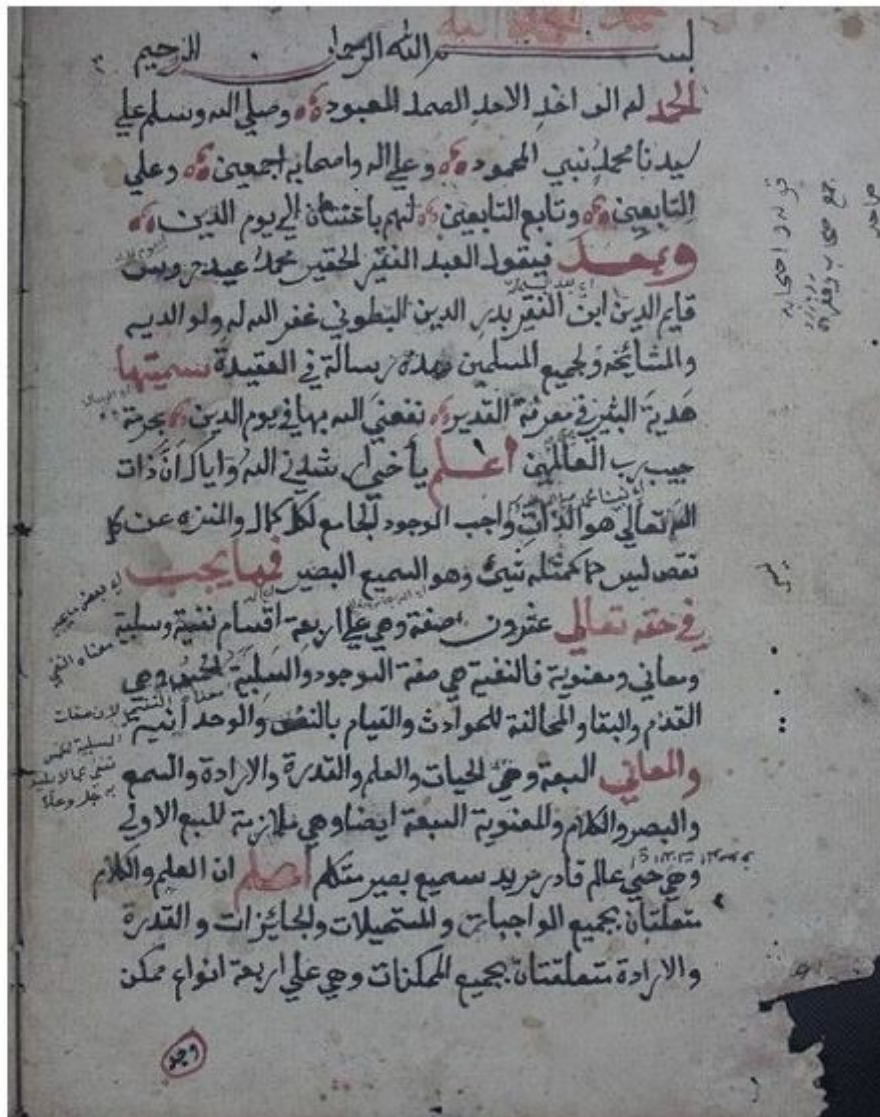 بسم الله الرحمان الرحيم
الحمد لله الواحد الاحد الصمد المعبود وصلي الله وسلم علي
سيدنا محمد نبي المحمود وعلي اله واصحابه اجمعين وعلي
التابعين وتابع التابعين لهم الي يوم الدين
وبعد فيقول العبد الفقير الحقير محمد عيدروس
قايم الدين ابن الفقير بدر الدين البطوني غفر الله له ولوالديه
والمشائخه ولجميع المسلمين وهذه رسالة في العقيدة سميتها
هدية البشير في معرفة القدير نفعني الله بها في يوم الدين بحرمة
حبيب رب العالمين اعلم يا أخي ارشدني الله واياك أنّ ذات
الله تعالي هو الذات واجب الوجود الجامع لكل كمال والمنزه عن كل
نقص ليس كمثله شيئ وهو السميع البصير فما يجب
في حقه تعالي عشرون صفة وهي علي اربعة اقسام نفسية وسلبية
ومعاني ومعنوية فالنفسية هي صفة الوجود والسلبية الخمس وهي
القدم والبقا والمخالفة للحوادث والقيام بالنفس والوحدانية
والمعاني السبعة وهي الحيات والعلم والقدرة والارادة والسمع
والبصر والكلام والمعنوية السبعة ايضا وهي ملازمة للسبع الاولي
وهي حيي عالم قادر مريد سميع بصير متكلم اعلم ان العلم والكلام
متعلقان بجميع الواجبات والمستحيلات والجائزات والقدرة
والارادة متعلقتان بجميع الممكنات وهي علي اربعة انواع ممكن
وجد
قوله واصحابه
جمع صحب
صاحب
معناه النفي
لان صفات
السلبية